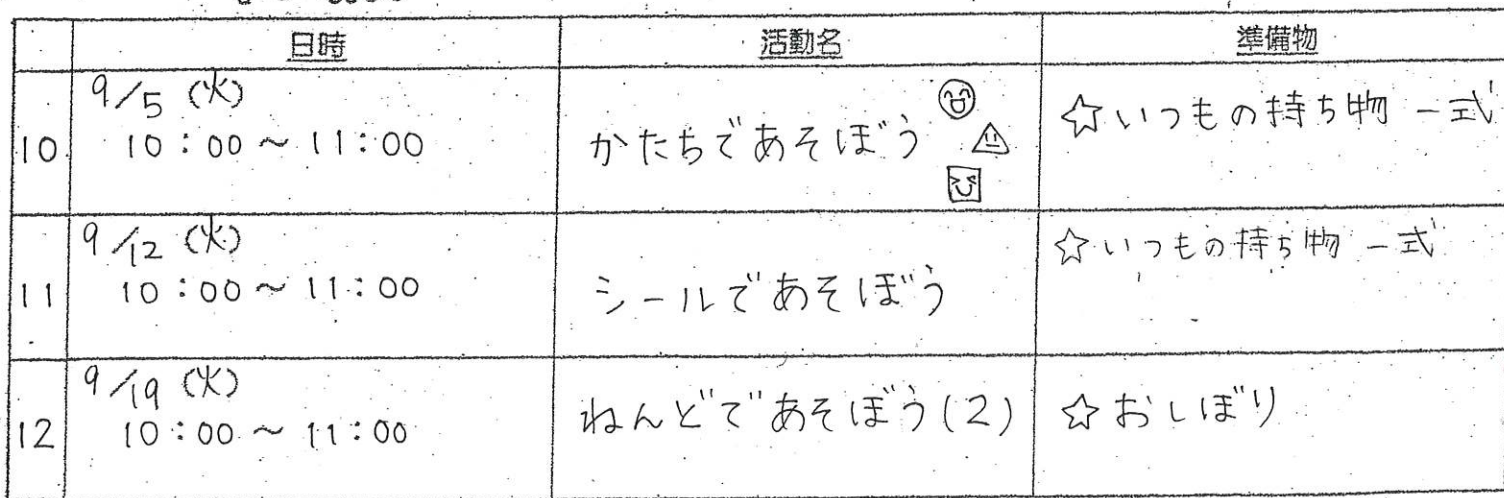 日時 活動名 準備物
10 9/5 (火)
10:00～11:00
かたちであそぼう
☆いつもの持ち物一式
11 9/12 (火)
10:00～11:00
シールであそぼう
☆いつもの持ち物一式
12 9/19 (火)
10:00～11:00
ねんどであそぼう(2)
☆おしぼり